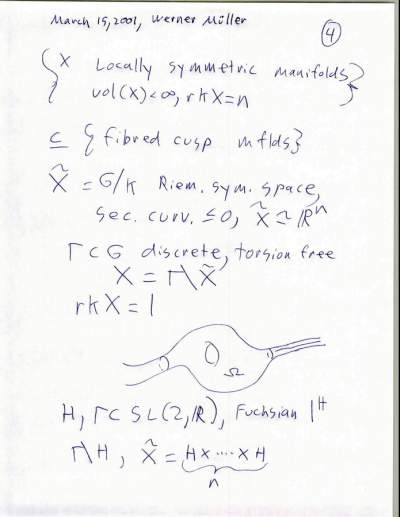 March 15, 2001, Werner Müller
④
{ X Locally symmetric manifolds,
vol(X)<∞, rk X=n }
⊆ {fibred cusp mflds}
X̃ = G/K Riem. sym. space,
sec. curv. ≤0, X̃ ≃ ℝⁿ
Γ⊂G discrete, torsion free
X = Γ\X̃
rk X = 1
Ω
H, Γ⊂ SL(2,ℝ), Fuchsian
Γ\H, X̃ = H×····×H
n